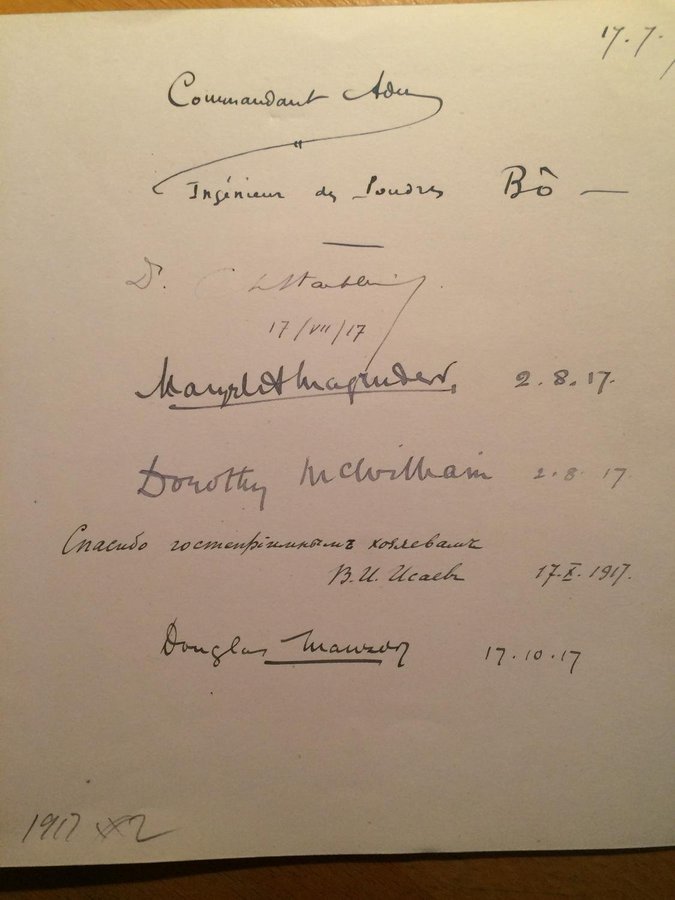 17.7.
Commandant
"
Ingénieur des Poudres Bô —
Dr.
17/VII/17
2.8.17.
Dorothy McWilliam 2.8.17
Спасибо гостепріимнымъ хозяевамъ
В.И. Исаевъ 17.X.1917.
Douglas Mawson 17.10.17
1917